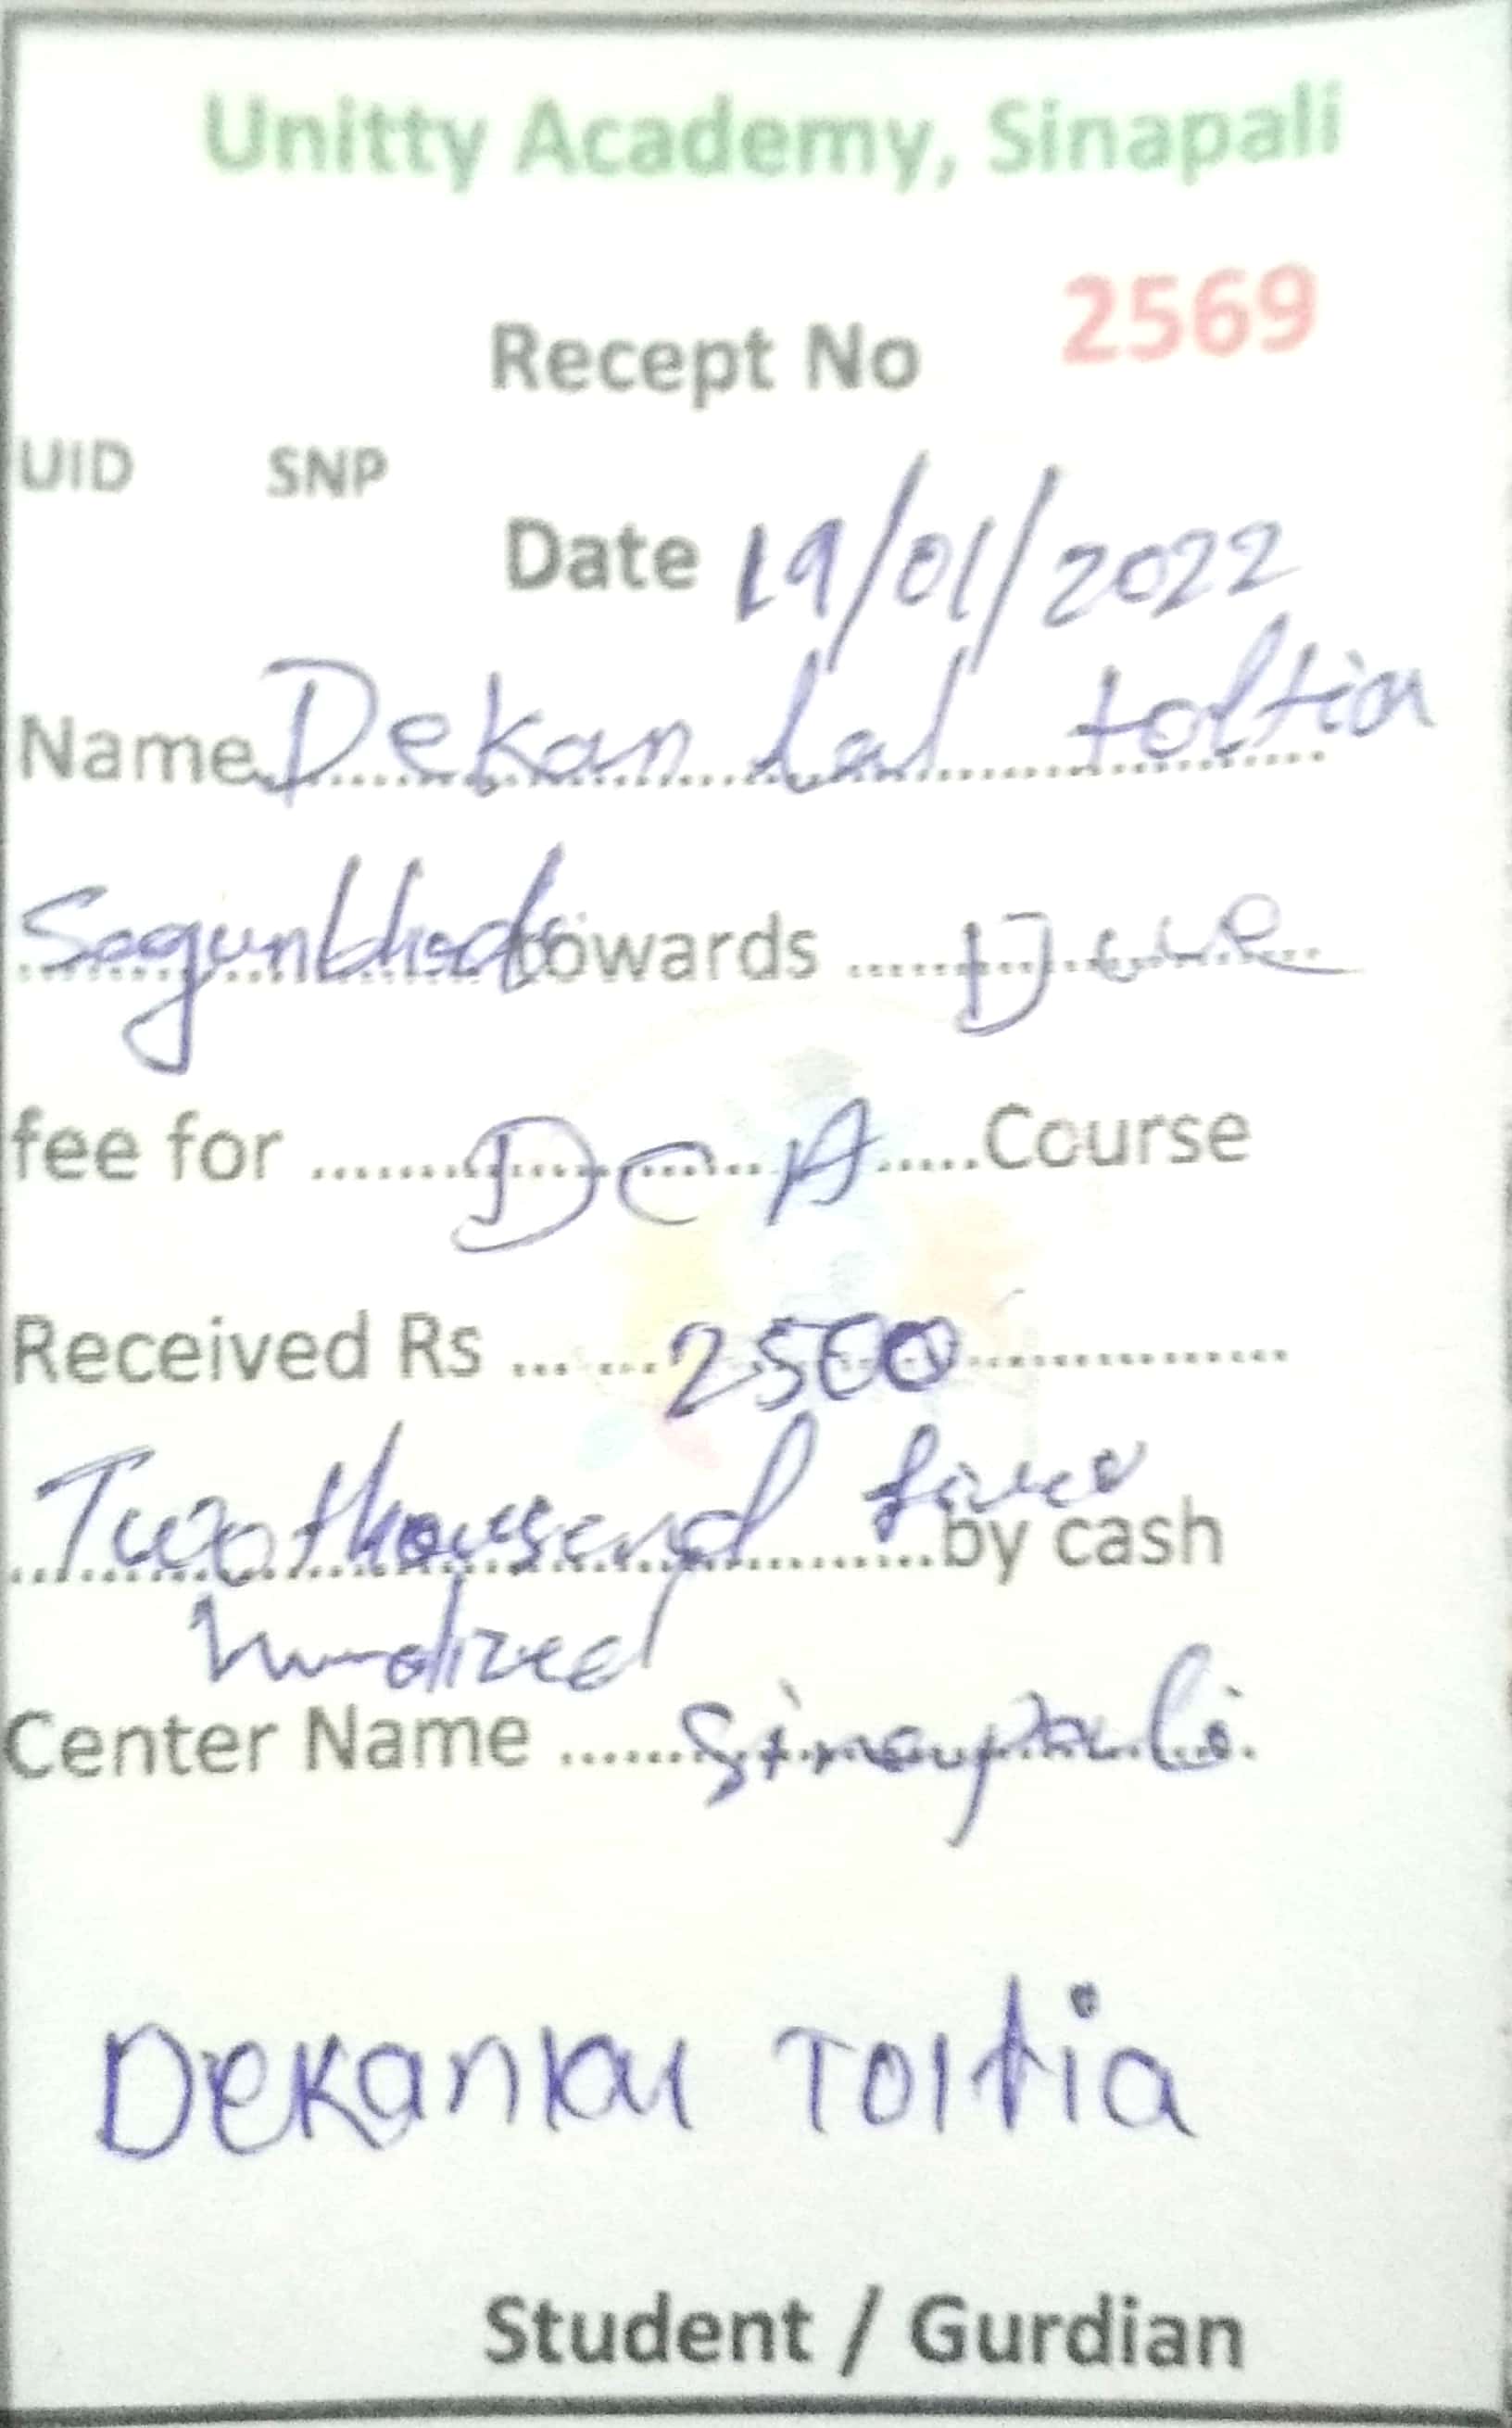 Unitty Academy, Sinapali
Recept No 2569
UID SNP
Date 19/01/2022
Name Dekan Lal toltia
towards Due
fee for DCA Course
Received Rs 2500
Two thousand five by cash
hundred
Center Name Sinapali
Dekanlal Toltia
Student / Gurdian